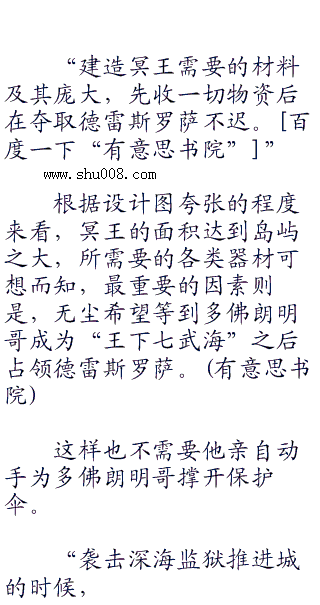 “建造冥王需要的材料
及其庞大，先收一切物资后
在夺取德雷斯罗萨不迟。[百
度一下“有意思书院”]”
www.shu008.com
根据设计图夸张的程度
来看，冥王的面积达到岛屿
之大，所需要的各类器材可
想而知，最重要的因素则
是，无尘希望等到多佛朗明
哥成为“王下七武海”之后
占领德雷斯罗萨。(有意思书
院)
这样也不需要他亲自动
手为多佛朗明哥撑开保护
伞。
“袭击深海监狱推进城
的时候，